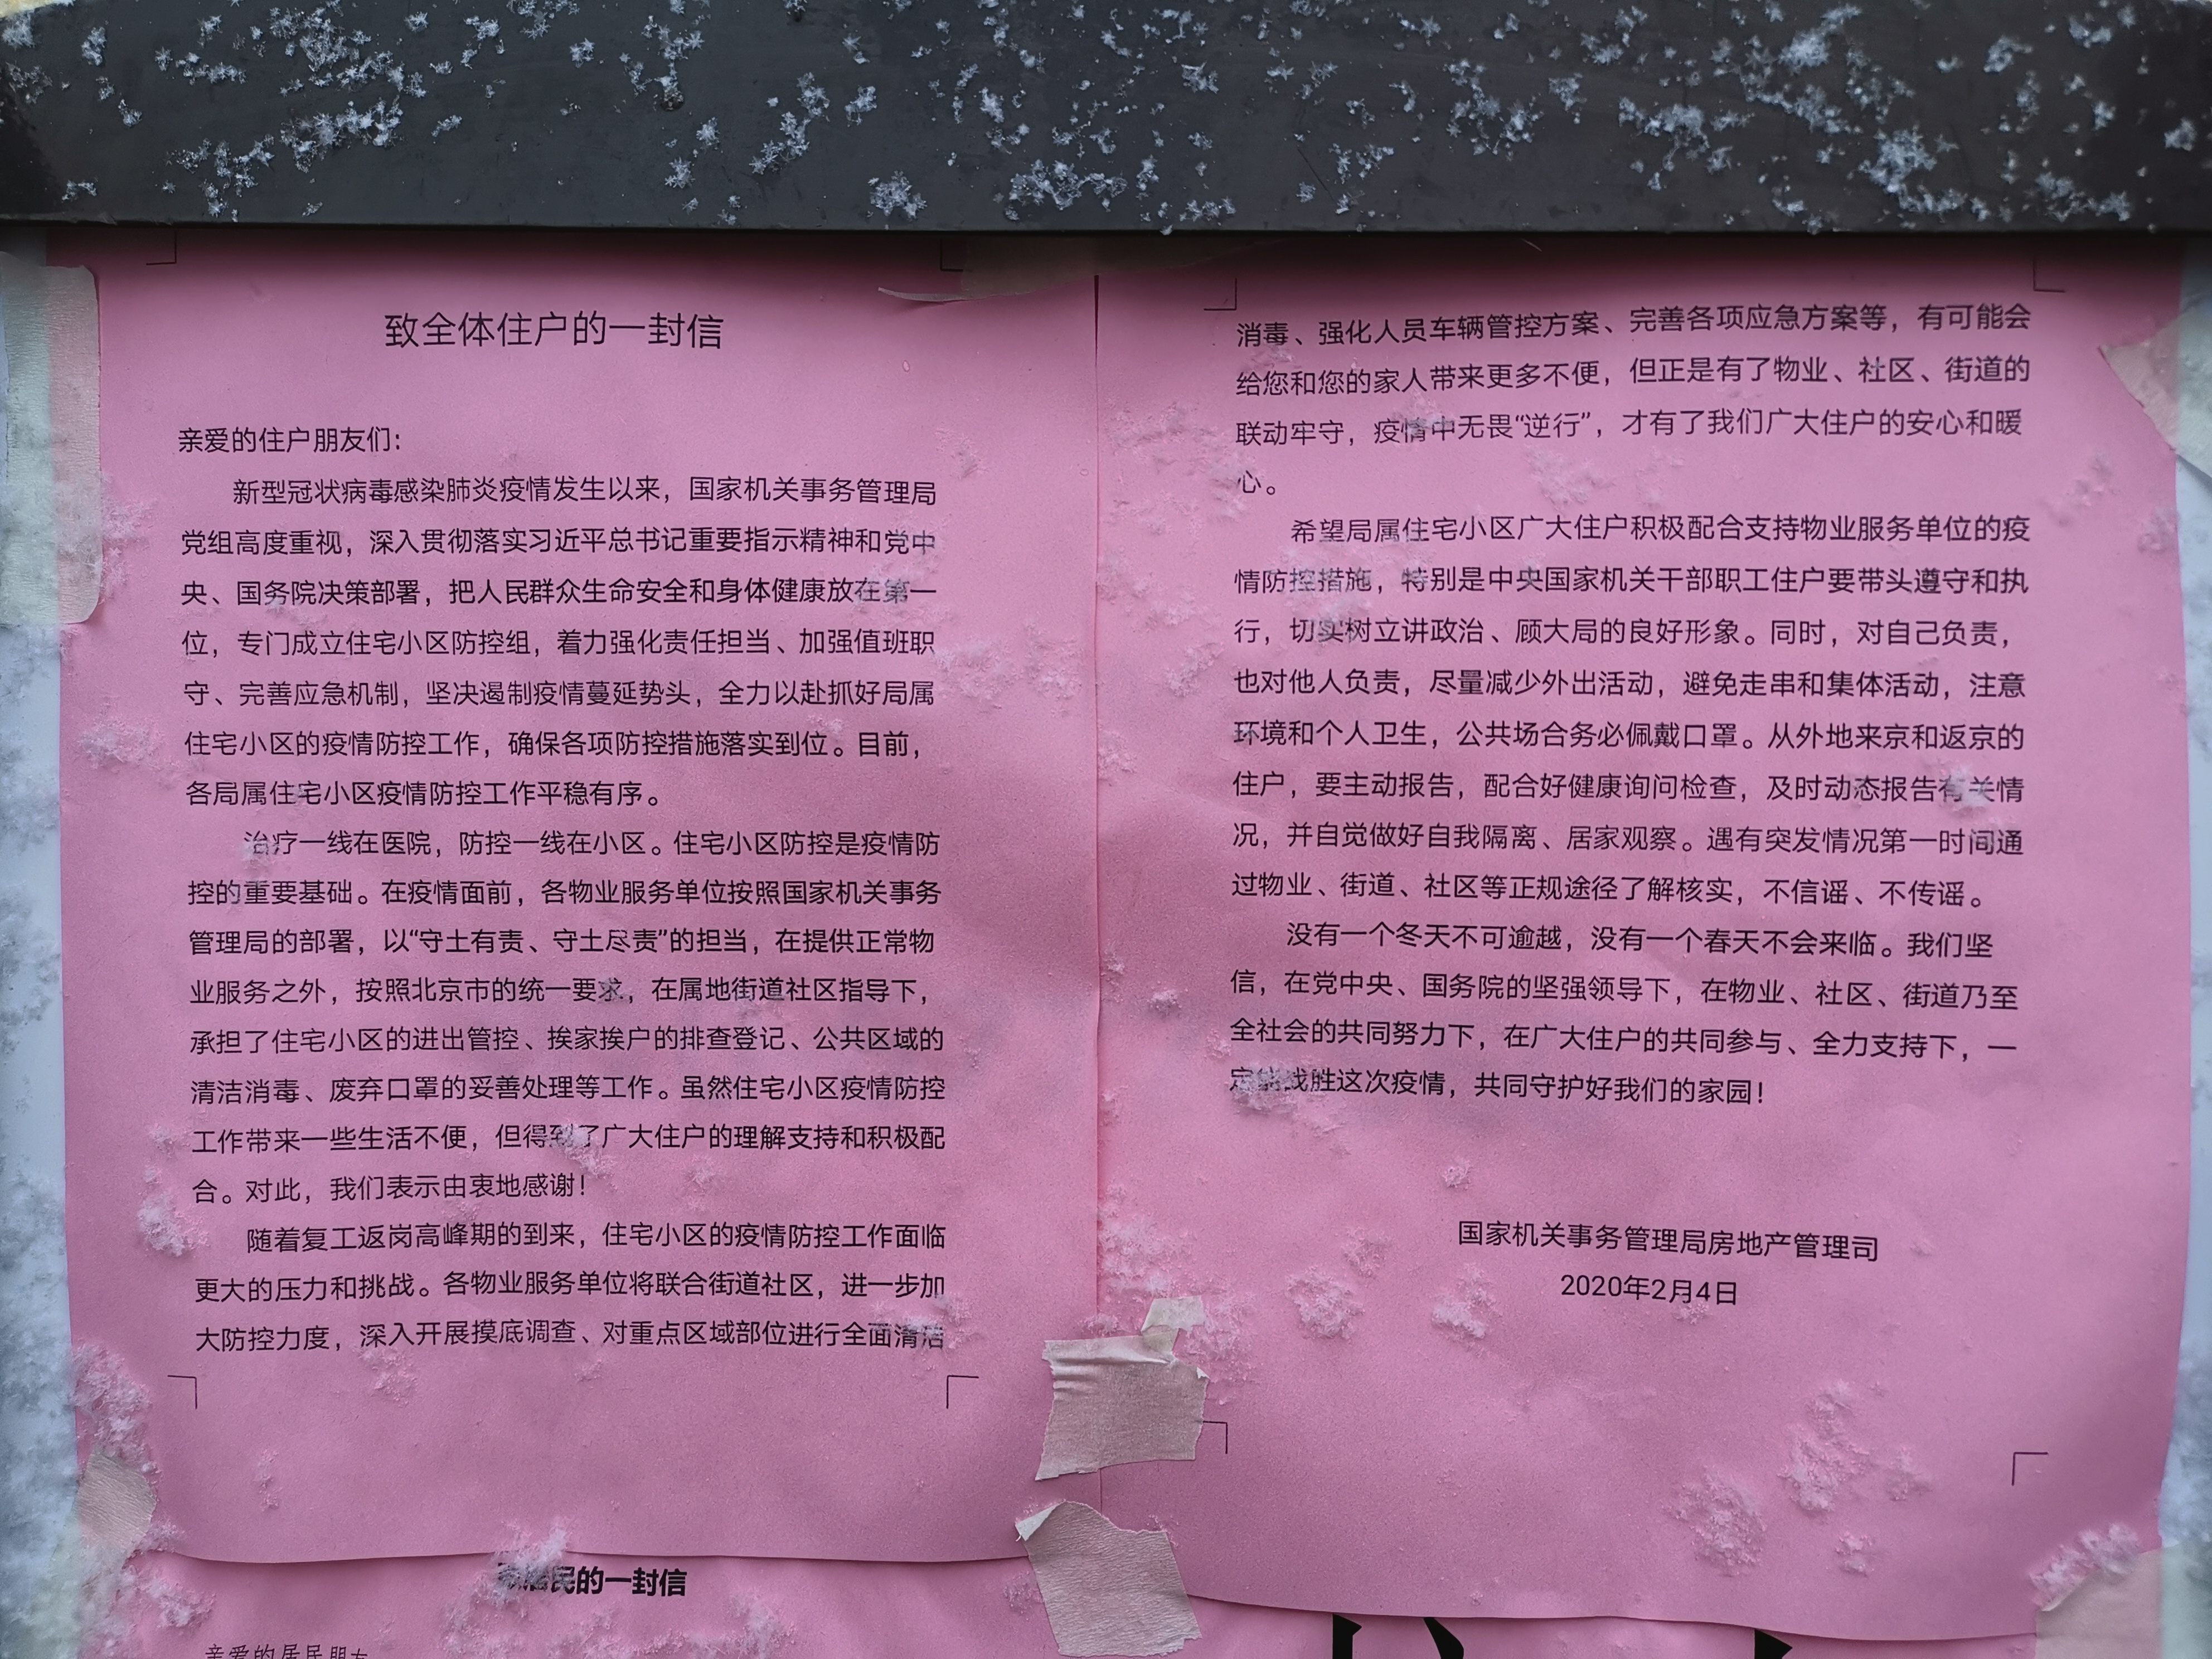 致全体住户的一封信
亲爱的住户朋友们：
新型冠状病毒感染肺炎疫情发生以来，国家机关事务管理局
党组高度重视，深入贯彻落实习近平总书记重要指示精神和党中
央、国务院决策部署，把人民群众生命安全和身体健康放在第一
位，专门成立住宅小区防控组，着力强化责任担当、加强值班职
守、完善应急机制，坚决遏制疫情蔓延势头，全力以赴抓好局属
住宅小区的疫情防控工作，确保各项防控措施落实到位。目前，
各局属住宅小区疫情防控工作平稳有序。
治疗一线在医院，防控一线在小区。住宅小区防控是疫情防
控的重要基础。在疫情面前，各物业服务单位按照国家机关事务
管理局的部署，以“守土有责、守土尽责”的担当，在提供正常物
业服务之外，按照北京市的统一要求，在属地街道社区指导下，
承担了住宅小区的进出管控、挨家挨户的排查登记、公共区域的
清洁消毒、废弃口罩的妥善处理等工作。虽然住宅小区疫情防控
工作带来一些生活不便，但得到了广大住户的理解支持和积极配
合。对此，我们表示由衷地感谢！
随着复工返岗高峰期的到来，住宅小区的疫情防控工作面临
更大的压力和挑战。各物业服务单位将联合街道社区，进一步加
大防控力度，深入开展摸底调查、对重点区域部位进行全面清洁
消毒、强化人员车辆管控方案、完善各项应急方案等，有可能会
给您和您的家人带来更多不便，但正是有了物业、社区、街道的
联动牢守，疫情中无畏“逆行”，才有了我们广大住户的安心和暖
心。
希望局属住宅小区广大住户积极配合支持物业服务单位的疫
情防控措施，特别是中央国家机关干部职工住户要带头遵守和执
行，切实树立讲政治、顾大局的良好形象。同时，对自己负责，
也对他人负责，尽量减少外出活动，避免走串和集体活动，注意
环境和个人卫生，公共场合务必佩戴口罩。从外地来京和返京的
住户，要主动报告，配合好健康询问检查，及时动态报告有关情
况，并自觉做好自我隔离、居家观察。遇有突发情况第一时间通
过物业、街道、社区等正规途径了解核实，不信谣、不传谣。
没有一个冬天不可逾越，没有一个春天不会来临。我们坚
信，在党中央、国务院的坚强领导下，在物业、社区、街道乃至
全社会的共同努力下，在广大住户的共同参与、全力支持下，一
定能战胜这次疫情，共同守护好我们的家园！
国家机关事务管理局房地产管理司
2020年2月4日
居民的一封信
亲爱的居民朋友